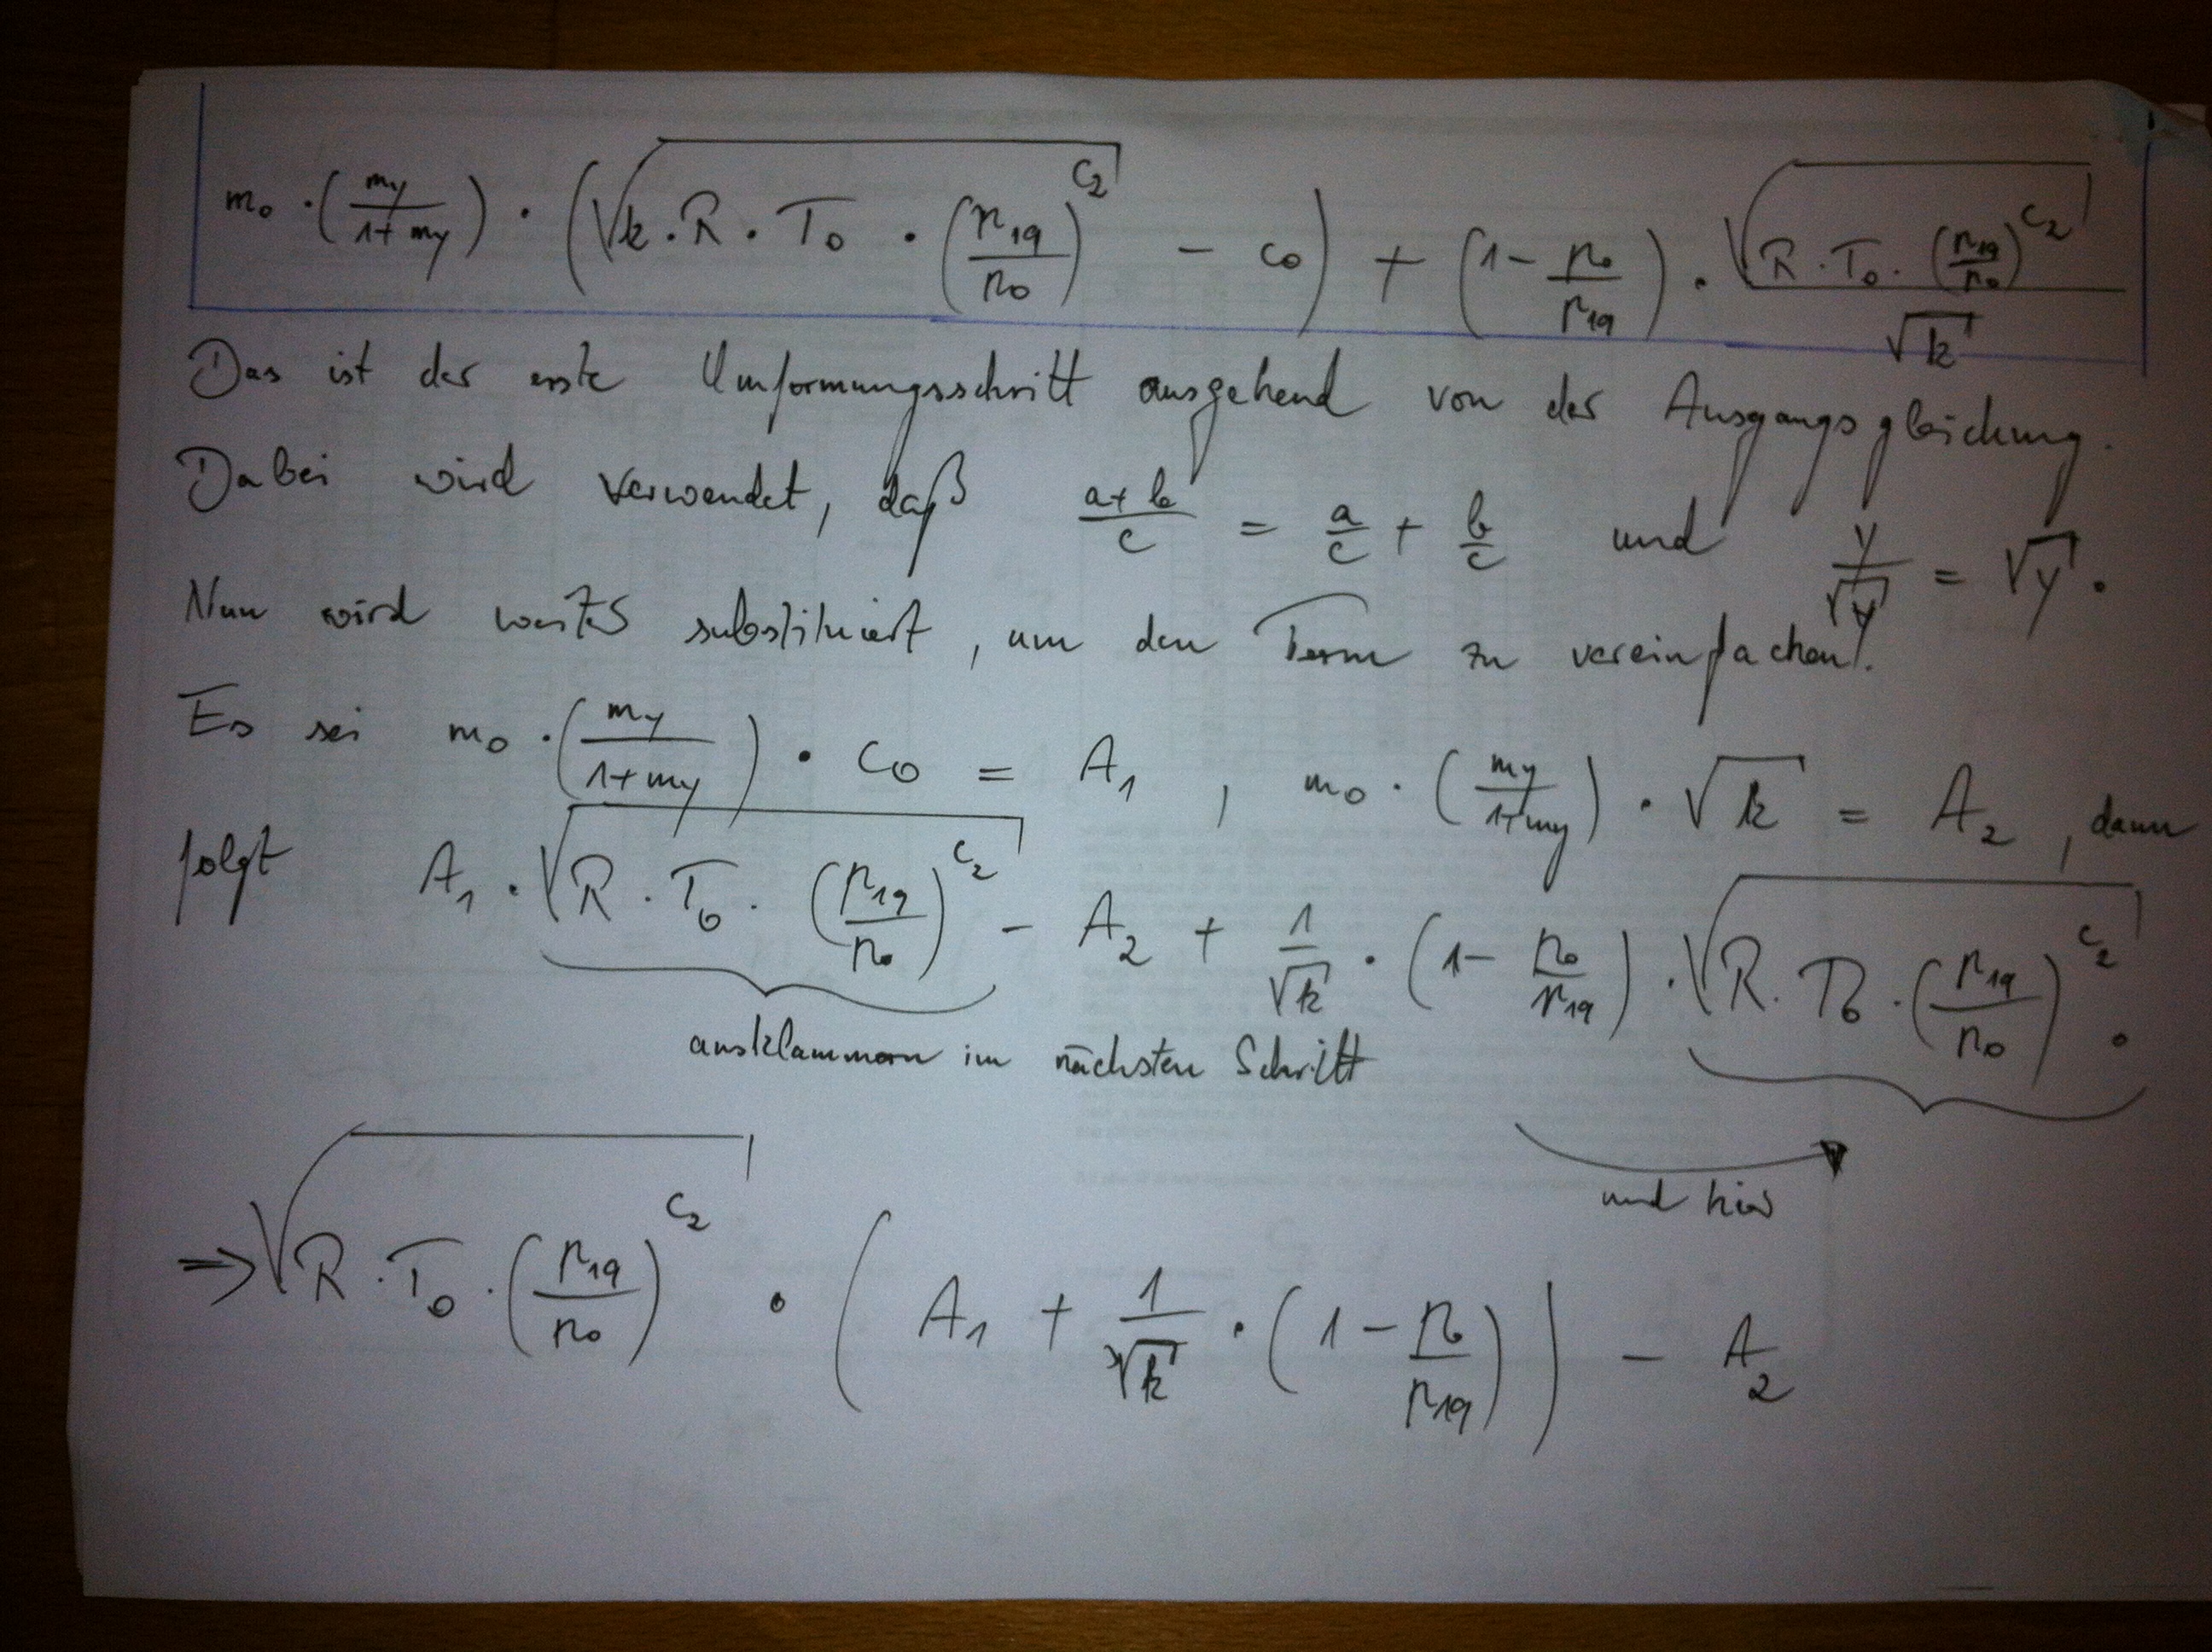 m₀ · (my/(1+my)) · (√(k · R · T₀ · (p₁₉/p₀)^c₂) − c₀) + (1 − p₀/p₁₉) · √(R · T₀ · (p₁₉/p₀)^c₂)/√k
Das ist der erste Umformungsschritt ausgehend von der Ausgangsgleichung.
Dabei wird verwendet, daß (a+b)/c = a/c + b/c und y/√y = √y.
Nun wird weiter substituiert, um den Term zu vereinfachen.
Es sei m₀ · (my/(1+my)) · c₀ = A₁, m₀ · (my/(1+my)) · √k = A₂, dann
folgt A₁ · √(R · T₀ · (p₁₉/p₀)^c₂) − A₂ + 1/√k · (1 − p₀/p₁₉) · √(R · T₀ · (p₁₉/p₀)^c₂).
ausklammern im nächsten Schritt
und hier
⇒ √(R · T₀ · (p₁₉/p₀)^c₂) · (A₁ + 1/√k · (1 − p₀/p₁₉)) − A₂